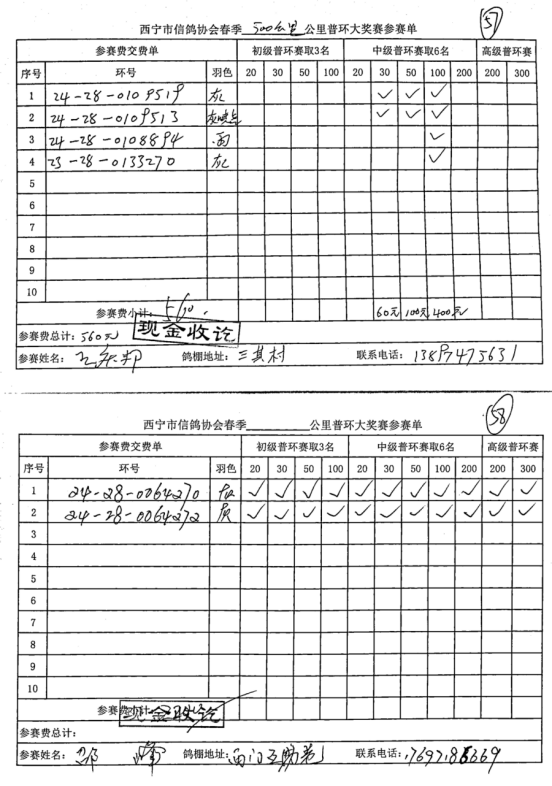 57
西宁市信鸽协会春季 500公里 公里普环大奖赛参赛单
参赛费交费单 初级普环赛取3名 中级普环赛取6名 高级普环赛
序号 环号 羽色 20 30 50 100 20 30 50 100 200 200 300
1 24-28-0109519 灰 ✓ ✓ ✓
2 24-28-0109513 ✓ ✓ ✓
3 24-28-0108894 雨 ✓
4 23-28-0133270 灰 ✓
5
6
7
8
9
10
参赛费小计: 560. 60元 100元 400元
参赛费总计: 560元 现金收讫
参赛姓名: 鸽棚地址: 三其村 联系电话: 13897475631
58
西宁市信鸽协会春季 公里普环大奖赛参赛单
参赛费交费单 初级普环赛取3名 中级普环赛取6名 高级普环赛
序号 环号 羽色 20 30 50 100 20 30 50 100 200 200 300
1 24-28-0064270 灰 ✓ ✓ ✓ ✓ ✓ ✓ ✓ ✓ ✓ ✓ ✓
2 24-28-0064272 灰 ✓ ✓ ✓ ✓ ✓ ✓ ✓ ✓ ✓ ✓ ✓
3
4
5
6
7
8
9
10
参赛费小计: 现金收讫
参赛费总计:
参赛姓名: 邹峰 鸽棚地址: 西门互助 联系电话: